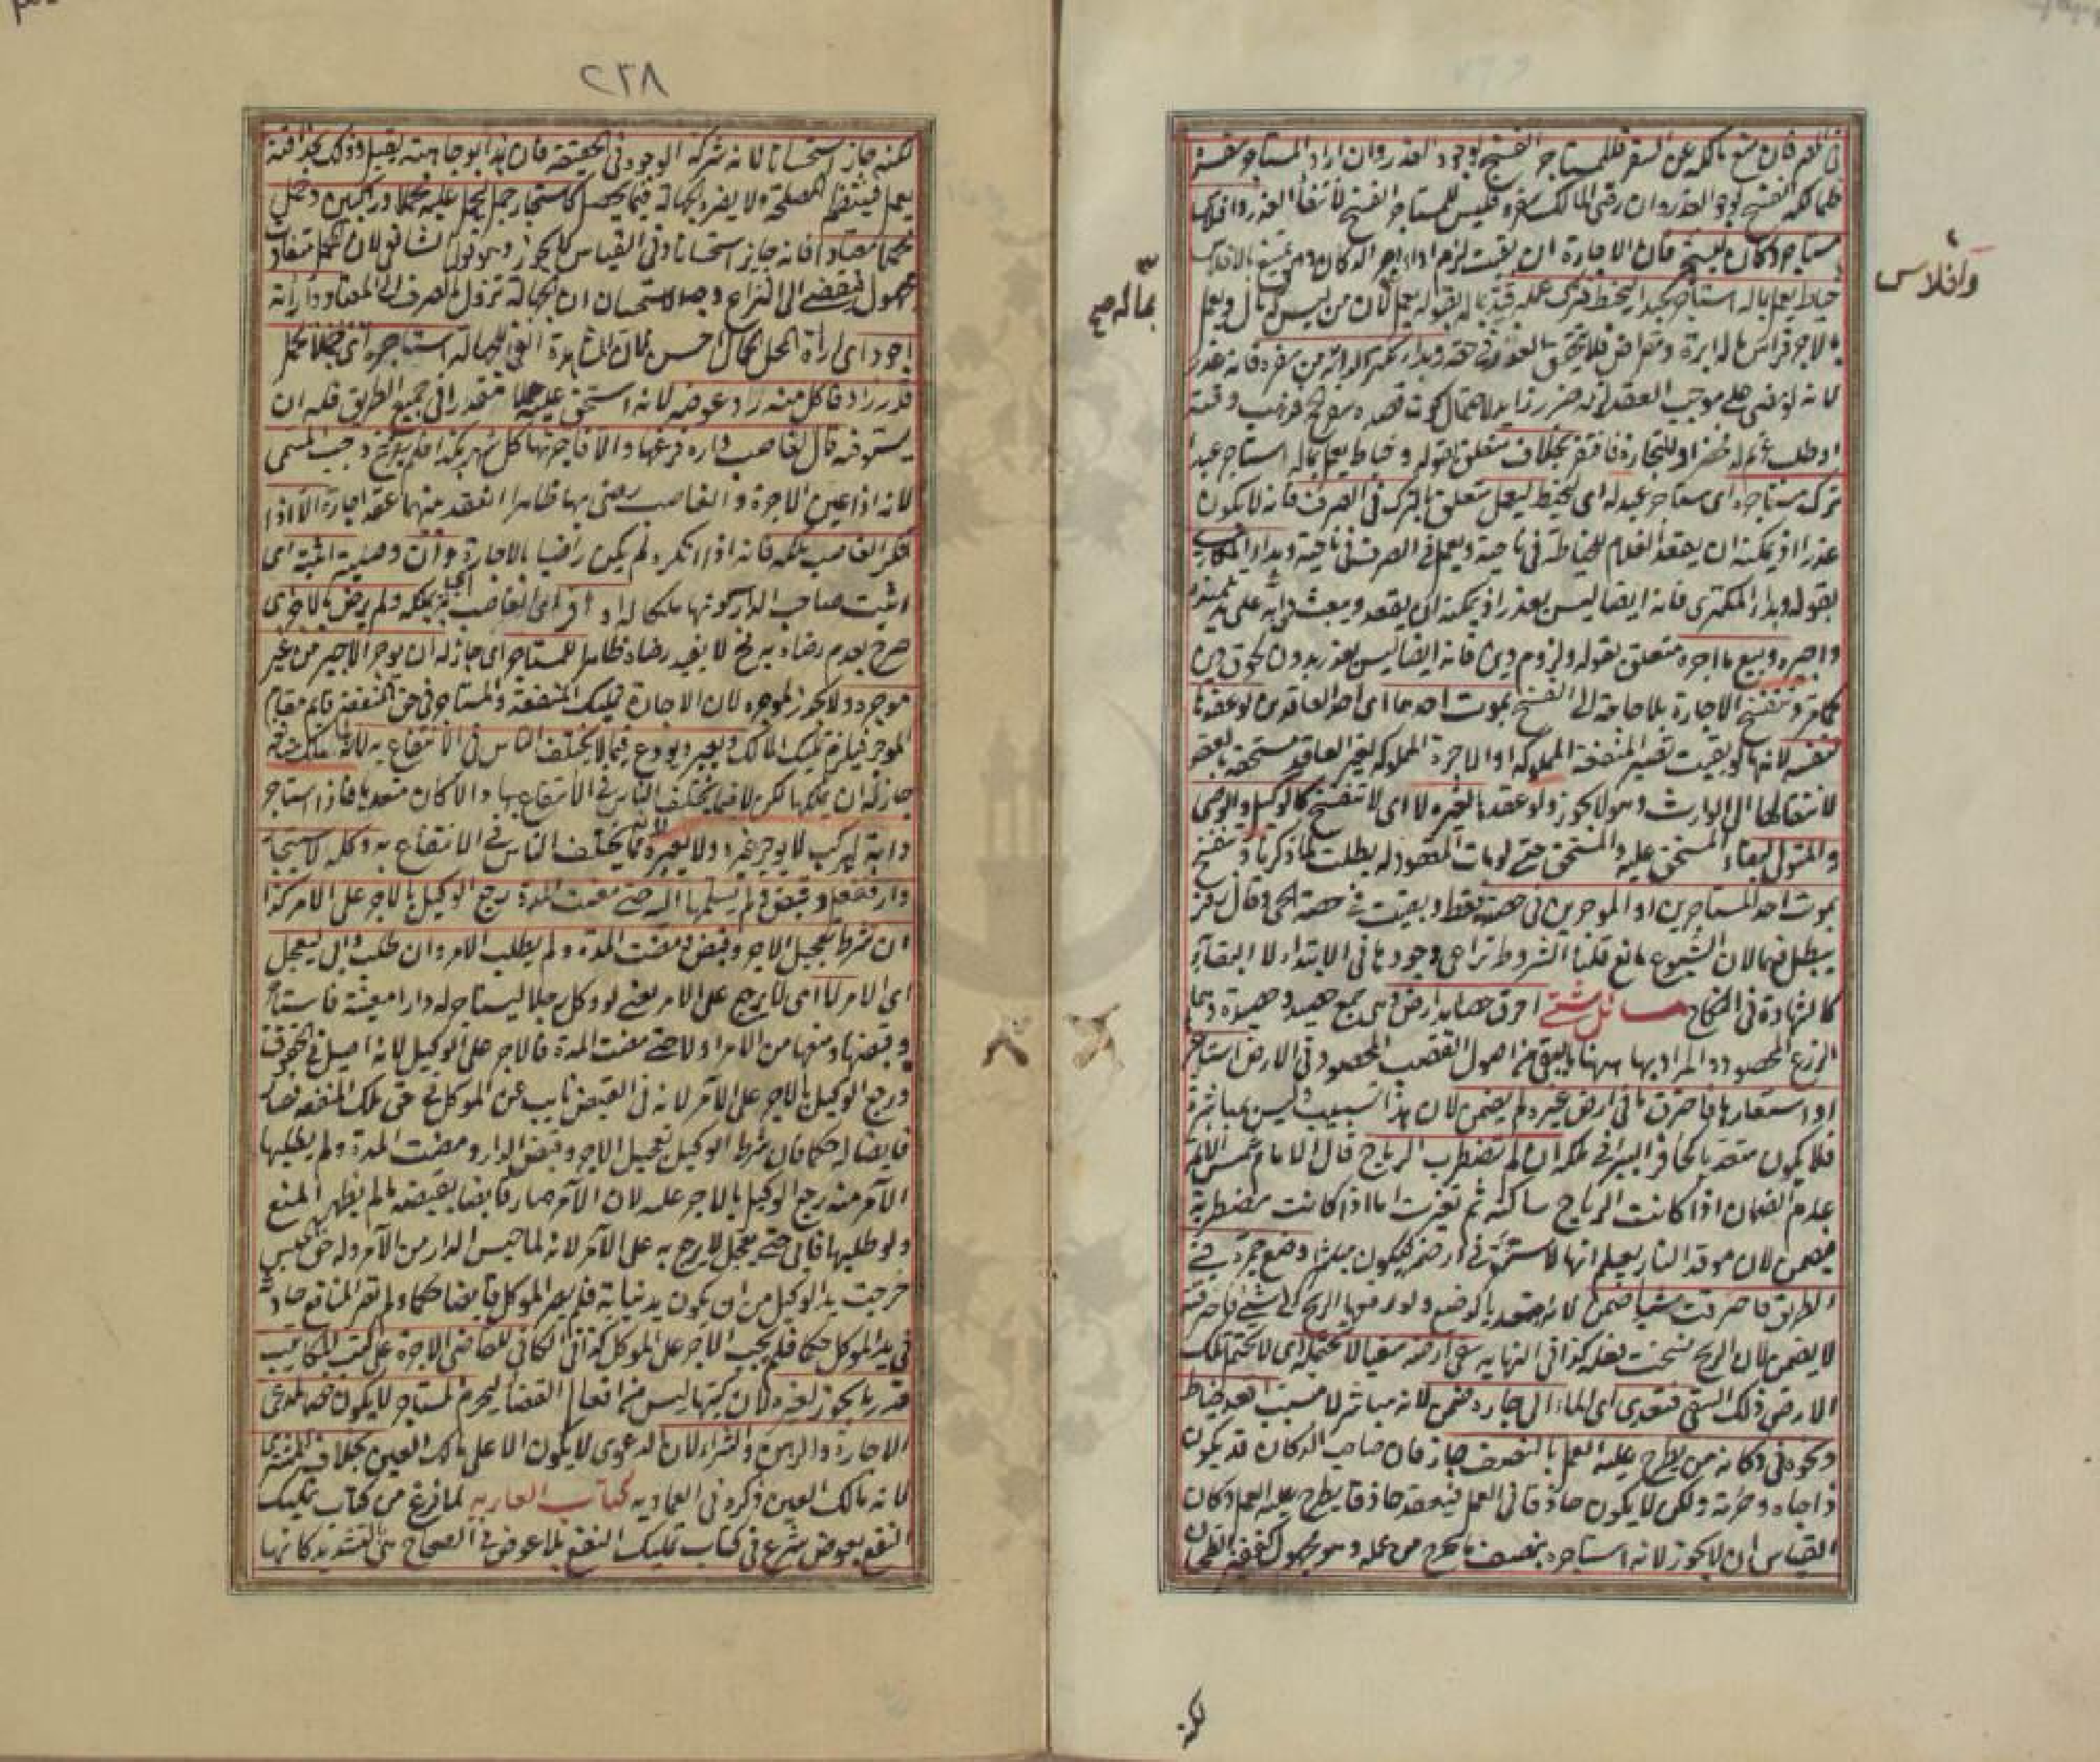 في المصر فان منع مالكه عن السفر فللمستاجر الفسخ لوجود العذر وان اراد المستاجر سفره
فلمالكه الفسخ لوجود العذر وان رضى المالك سفره فليس للمستاجر الفسخ لانتفاء العذر وافلاس
مستاجر دكان ليتجر فان الاجارة ان بقيت لزم اداء اجر الدكان وهو ممتنع بالافلاس
وافلاس
خياط يعمل بماله استاجر عبدا ليخيط فترك عمله قيد بماله بقوله يعمل لان من ليس له مال ويعمل
بماله صح
بالاجر فراس ماله ابرة ومقراض فلا يتحقق العذر في حقه وبداء مكترى الدابة من سفره فانه عذر
لانه لو مضى على موجب العقد لزمه ضرر زائد لاحتمال كون قصده سفر الحج فذهب وقته
او طلب غريم له فحضر او للتجارة فافتقر بخلاف متعلق بقوله وخياط يعمل بماله استاجر عبدا
ترك مستاجره اى مستاجر عبد له اى ليخيط ليعمل متعلق بالترك في الصرف فانه لا يكون
عذرا اذ يمكنه ان يقعد الغلام للخياطة في ناحية ويعمل في الصرف في ناحية وبداء المكارى
بقوله وبداء المكترى فانه ايضا ليس بعذر اذ يمكنه ان يقعد ويبعث دابته على يد تلميذه
واجيره وبيع ما اجره متعلق بقوله ولزوم دين فانه ايضا ليس بعذر بدون لحوق دين
كما مر وتنفسخ الاجارة بلا حاجة الى الفسخ بموت احدهما اى احد العاقدين لو عقدها
لنفسه لانها لو بقيت تصير المنفعة المملوكة او الاجرة المملوكة لغير العاقد مستحقة بالعقد
لانتقالها الى الوارث وهو لا يجوز ولو عقدها لغيره لا اى لا تنفسخ كالوكيل والوصى
والمتولى لبقاء المستحق عليه والمستحق حتى لو مات المعقود له بطلت لما ذكرنا وتنفسخ
بموت احد المستاجرين او الموجرين في حصته فقط وبقيت في حصة الحى وقال زفر
يبطل فيهما لان الشيوع مانع قلنا الشروط تراعى وجودها في الابتداء لا البقاء
كالشهادة في النكاح مسائل شتى احرق حصايد ارض هى جمع حصيد وحصيدة وهما
الزرع المحصود والمراد بها ههنا ما يبقى من اصول القصب المحصود في الارض استاجرها
او استعارها فاحترق ما في ارض غيره لم يضمن لان هذا تسبيب وليس بمباشرة
فلا يكون متعديا كحافر البئر في ملكه ان لم تضطرب الرياح قال الامام شمس الائمة
عدم الضمان اذا كانت الرياح ساكنة ثم تغيرت اما اذا كانت مضطربة
فيضمن لان موقد النار يعلم انها لا تستقر في ارضه فيكون مباشرا وضع جمرة في
الطريق فاحرقت شيئا ضمن لانه متعد بالوضع ولو رفعها الريح الى شئ فاحرقته
لا يضمن لان الريح نسخت فعله كذا في النهاية سقى ارضه سقيا لا تحتمله اى لا تحتمل تلك
الارض ذلك السقى فتعدى اى الماء الى جاره ضمن لانه مباشر لا مسبب اقعد خياط
ونحوه في دكانه من يطرح عليه العمل بالنصف جاز فان صاحب الدكان قد يكون
ذا جاه وحرمة ولكن لا يكون حاذقا في العمل فيقعد حاذقا يطرح عليه العمل وكان
القياس ان لا يجوز لانه استاجره بنصف ما يخرج من عمله وهو مجهول كقفيز الطحان
لكنه
٢٣٨
لكنه جاز استحسانا لانه شركة الوجوه في الحقيقة فان هذا بوجاهته يقبل وذلك بحذاقته
يعمل فينتظم المصلحة ولا يضره الجهالة فيما يحصل كاستيجار جمل ليحمل عليه محملا وراكبين وحمل
محملا معتادا فانه جايز استحسانا وفي القياس لا يجوز وهو قول الشافعى لان المحمل متفاوت
مجهول فيفضى الى النزاع وجه الاستحسان ان الجهالة تزول بالصرف الى المعتاد واراءته
اجود اى اراءة المحمل الجمال احسن لان المشاهدة انفى للجهالة استاجره اى جملا لحمل
قدر زاد فاكل منه زاد عوضه لانه استحق عليه حملا مقدرا في جميع الطريق فله ان
يستوفيه قال لغاصب داره فرغها والا فاجرتها كل شهر بكذا فلم يفرغ وجب المسمى
لانه اذا عين الاجرة والغاصب رضى بها ظاهرا انعقد بينهما عقد اجارة الا اذا
انكر الغاصب ملكه فانه اذا انكره لم يكن راضيا بالاجارة وان وصلية اثبته اى
اثبت صاحب الدار كونها ملكا له او اقر اى الغاصب به بملكه ولم يرض بالاجر اى
صرح بعدم رضاه به فح لا يفيد رضاه ظاهرا للمستاجر اى جاز له ان يوجر الاجير من غير
موجره ولا يجوز لموجره لان الاجارة تمليك المنفعة والمستاجر في حق المنفعة قايم مقام
الموجر فيلزم تمليك المالك ويعير ويودع فيما لا يختلف الناس في الانتفاع به لانه لما ملك منفعة
جاز له ان يملكها لكن لا فيما يختلف الناس في الانتفاع بها والا كان متعديا فاذا استاجر
دابة ليركب لا يوجر غيره ولا يعيره لانه مما يختلف الناس في الانتفاع به وكله لاستيجار
دار ففعل وقبض ولم يسلمها اليه حتى مضت المدة رجع الوكيل بالاجر على الامر كذا
ان شرط تعجيل الاجر وقبض ومضت المدة ولم يطلب الامر وان طلب وابى ليعجل
اى الامر لا اى لا يرجع على الامر يعنى لو وكل رجلا ليستاجر له دارا معينة فاستاجر
وقبضها ومنعها من الامر اولا حتى مضت المدة فالاجر على الوكيل لانه اصيل في الحقوق
ورجع الوكيل بالاجر على الآمر لانه في القبض نايب عن الموكل في حق ملك المنفعة فصار
قابضا له حكما فان شرط الوكيل تعجيل الاجر وقبض الدار ومضت المدة ولم يطلبها
الآمر منه رجع الوكيل بالاجر عليه لان الآمر صار قابضا بقبضه ما لم يظهر المنع
ولو طلبها فابى حتى يعجل لا يرجع به على الآمر لانه لما حبس الدار من الآمر وله حق الحبس
خرجت يد الوكيل من ان يكون يد نيابة فلم يصر الموكل قابضا حكما ولم تصر المنافع حادثة
في يد الموكل حكما فلم يجب الاجر على الموكل كذا في الكافي للقاضى الاجرة على كتب المكاتيب
قدر ما يجوز لغيره لان كتبها ليس من افعال القضاء ليحرم المستاجر لا يكون خصما لمدعى
الاجارة والرهن والشراء لان الدعوى لا يكون الا على مالك العين بخلاف المشترى
لانه مالك العين ذكره في العمادية كتاب العارية لما فرغ من كتاب تمليك
النفع بعوض شرع في كتاب تمليك النفع بلا عوض في الصحاح هى بالتشديد كانها